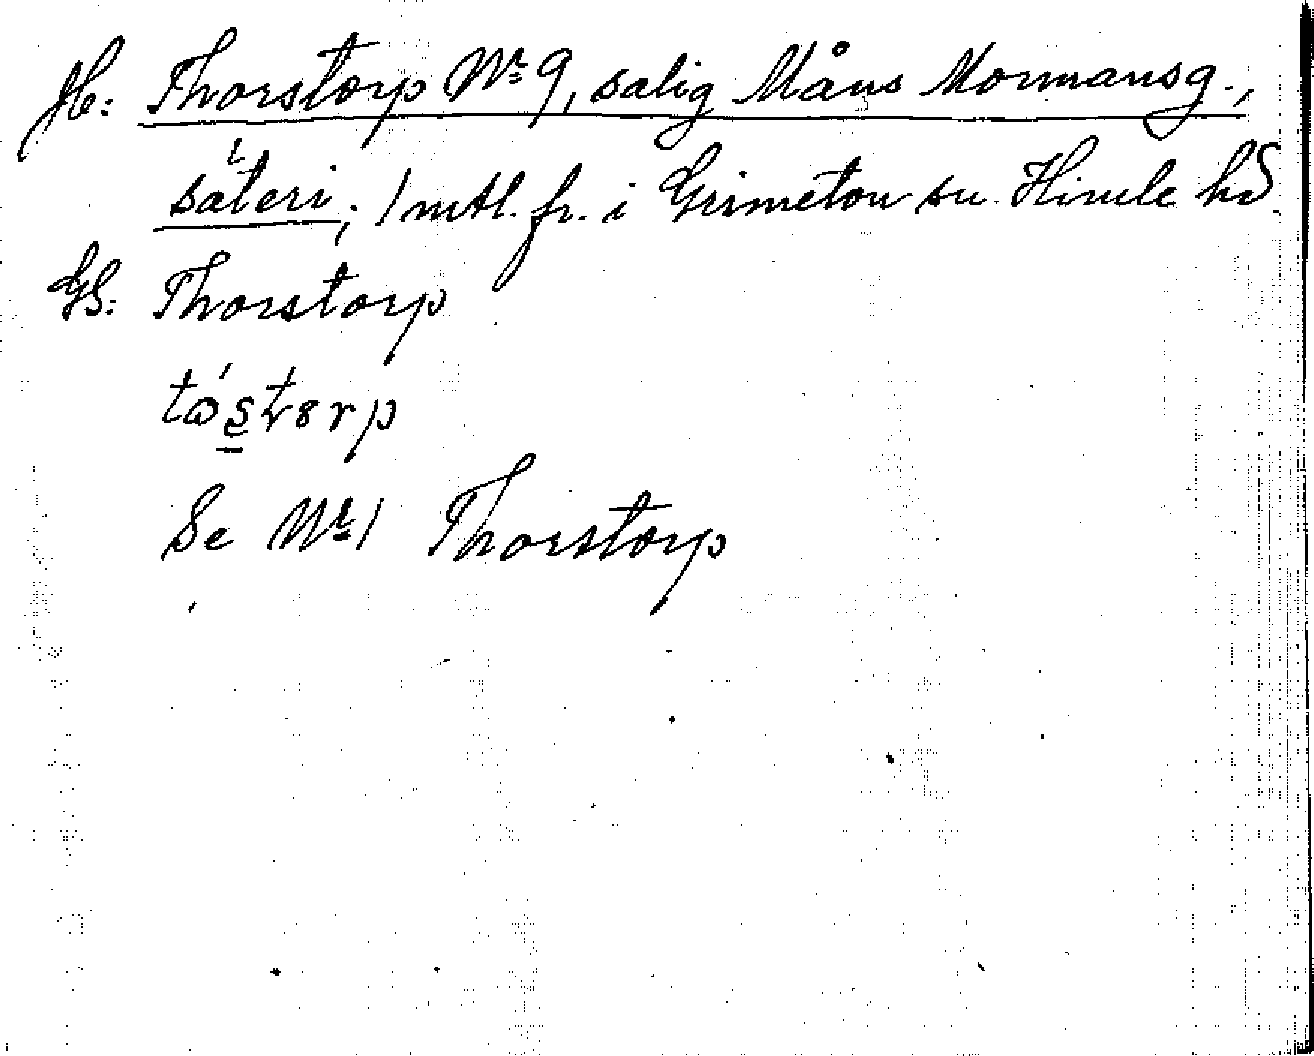 Jb: Thorstorp Nr 9, salig Måns Mormansg.,
säteri; 1 mtl. fr. i Grimeton sn. Himle hd
GS: Thorstorp
Se Nr 1 Thorstorp